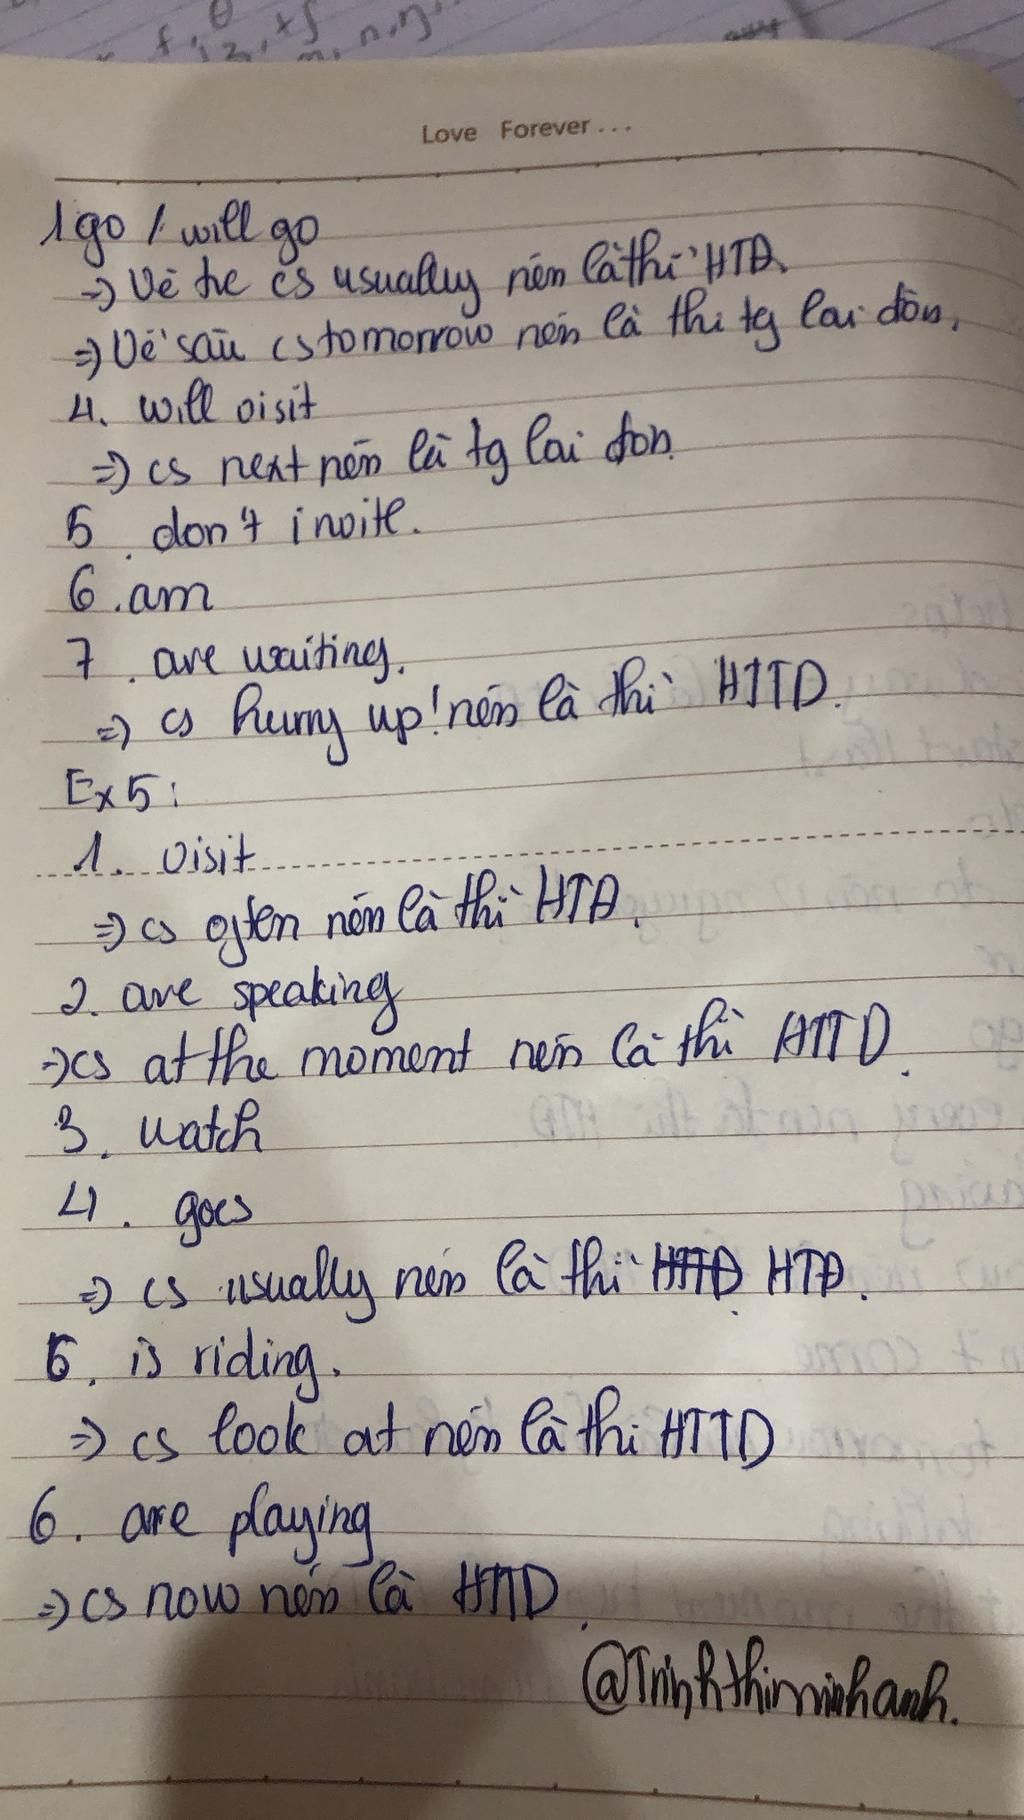 Love Forever...
1 go / will go
=> Vế tre cs usually nên là thì HTĐ.
=> Vế sau cs tomorrow nên là thì tg lai đơn.
4. will visit
=> cs next nên là tg lai đơn.
5. don't invite.
6. am
7. are waiting.
=> cs hurry up! nên là thì HTTD.
Ex5:
1. visit
=> cs often nên là thì HTĐ.
2. are speaking
=> cs at the moment nên là thì HTTD.
3. watch
4. goes
=> cs usually nên là thì HTTD HTĐ.
5. is riding.
=> cs look at nên là thì HTTD
6. are playing
=> cs now nên là HTTD.
@Trinhthiminhanh.